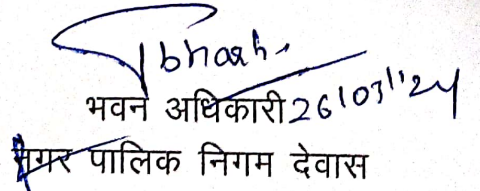 भवन अधिकारी 26/03/24
नगर पालिक निगम देवास